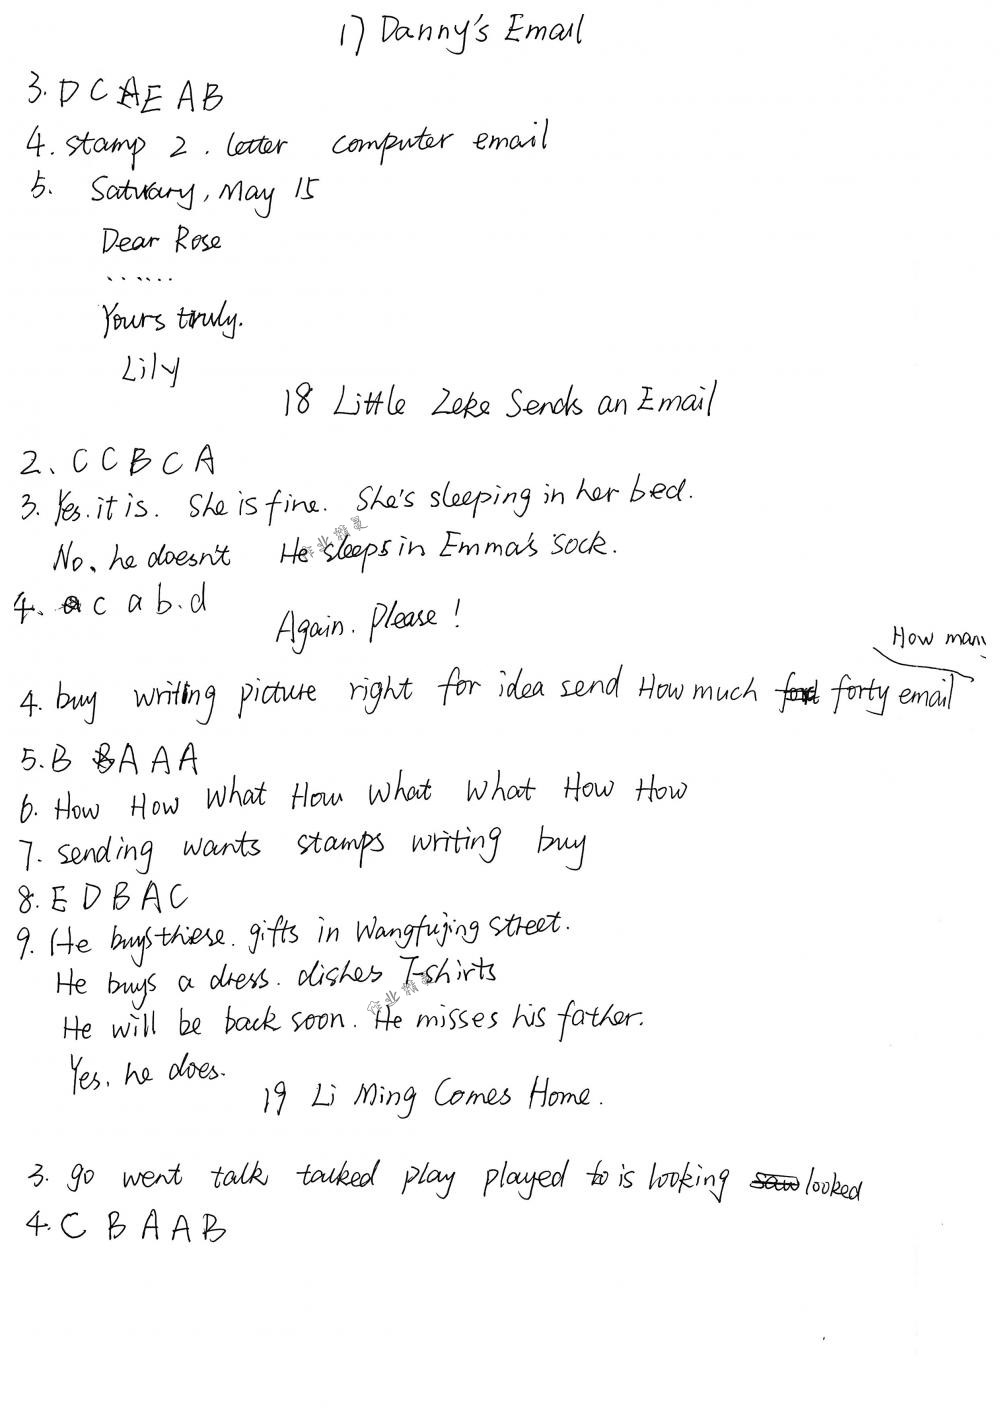 17 Danny's Email
3. D C E A B
4. stamp 2. letter computer email
5. Satuary, May 15
Dear Rose
......
Yours truly.
Lily
18 Little Zeke Sends an Email
2、C C B C A
3. Yes. it is. She is fine. She's sleeping in her bed.
No、he doesn't He sleeps in Emma's sock.
4、c a b.d
Again. Please!
How many
4. buy writing picture right for idea send How much forty email
5. B A A A
6. How How What How What What How How
7. sending wants stamps writing buy
8. E D B A C
9. He buys these. gifts in Wangfujing street.
He buys a dress. dishes T-shirts
He will be back soon. He misses his father.
Yes. he does.
19 Li Ming Comes Home.
3. go went talk talked play played to is looking looked
4. C B A A B
作业精灵
作业精灵